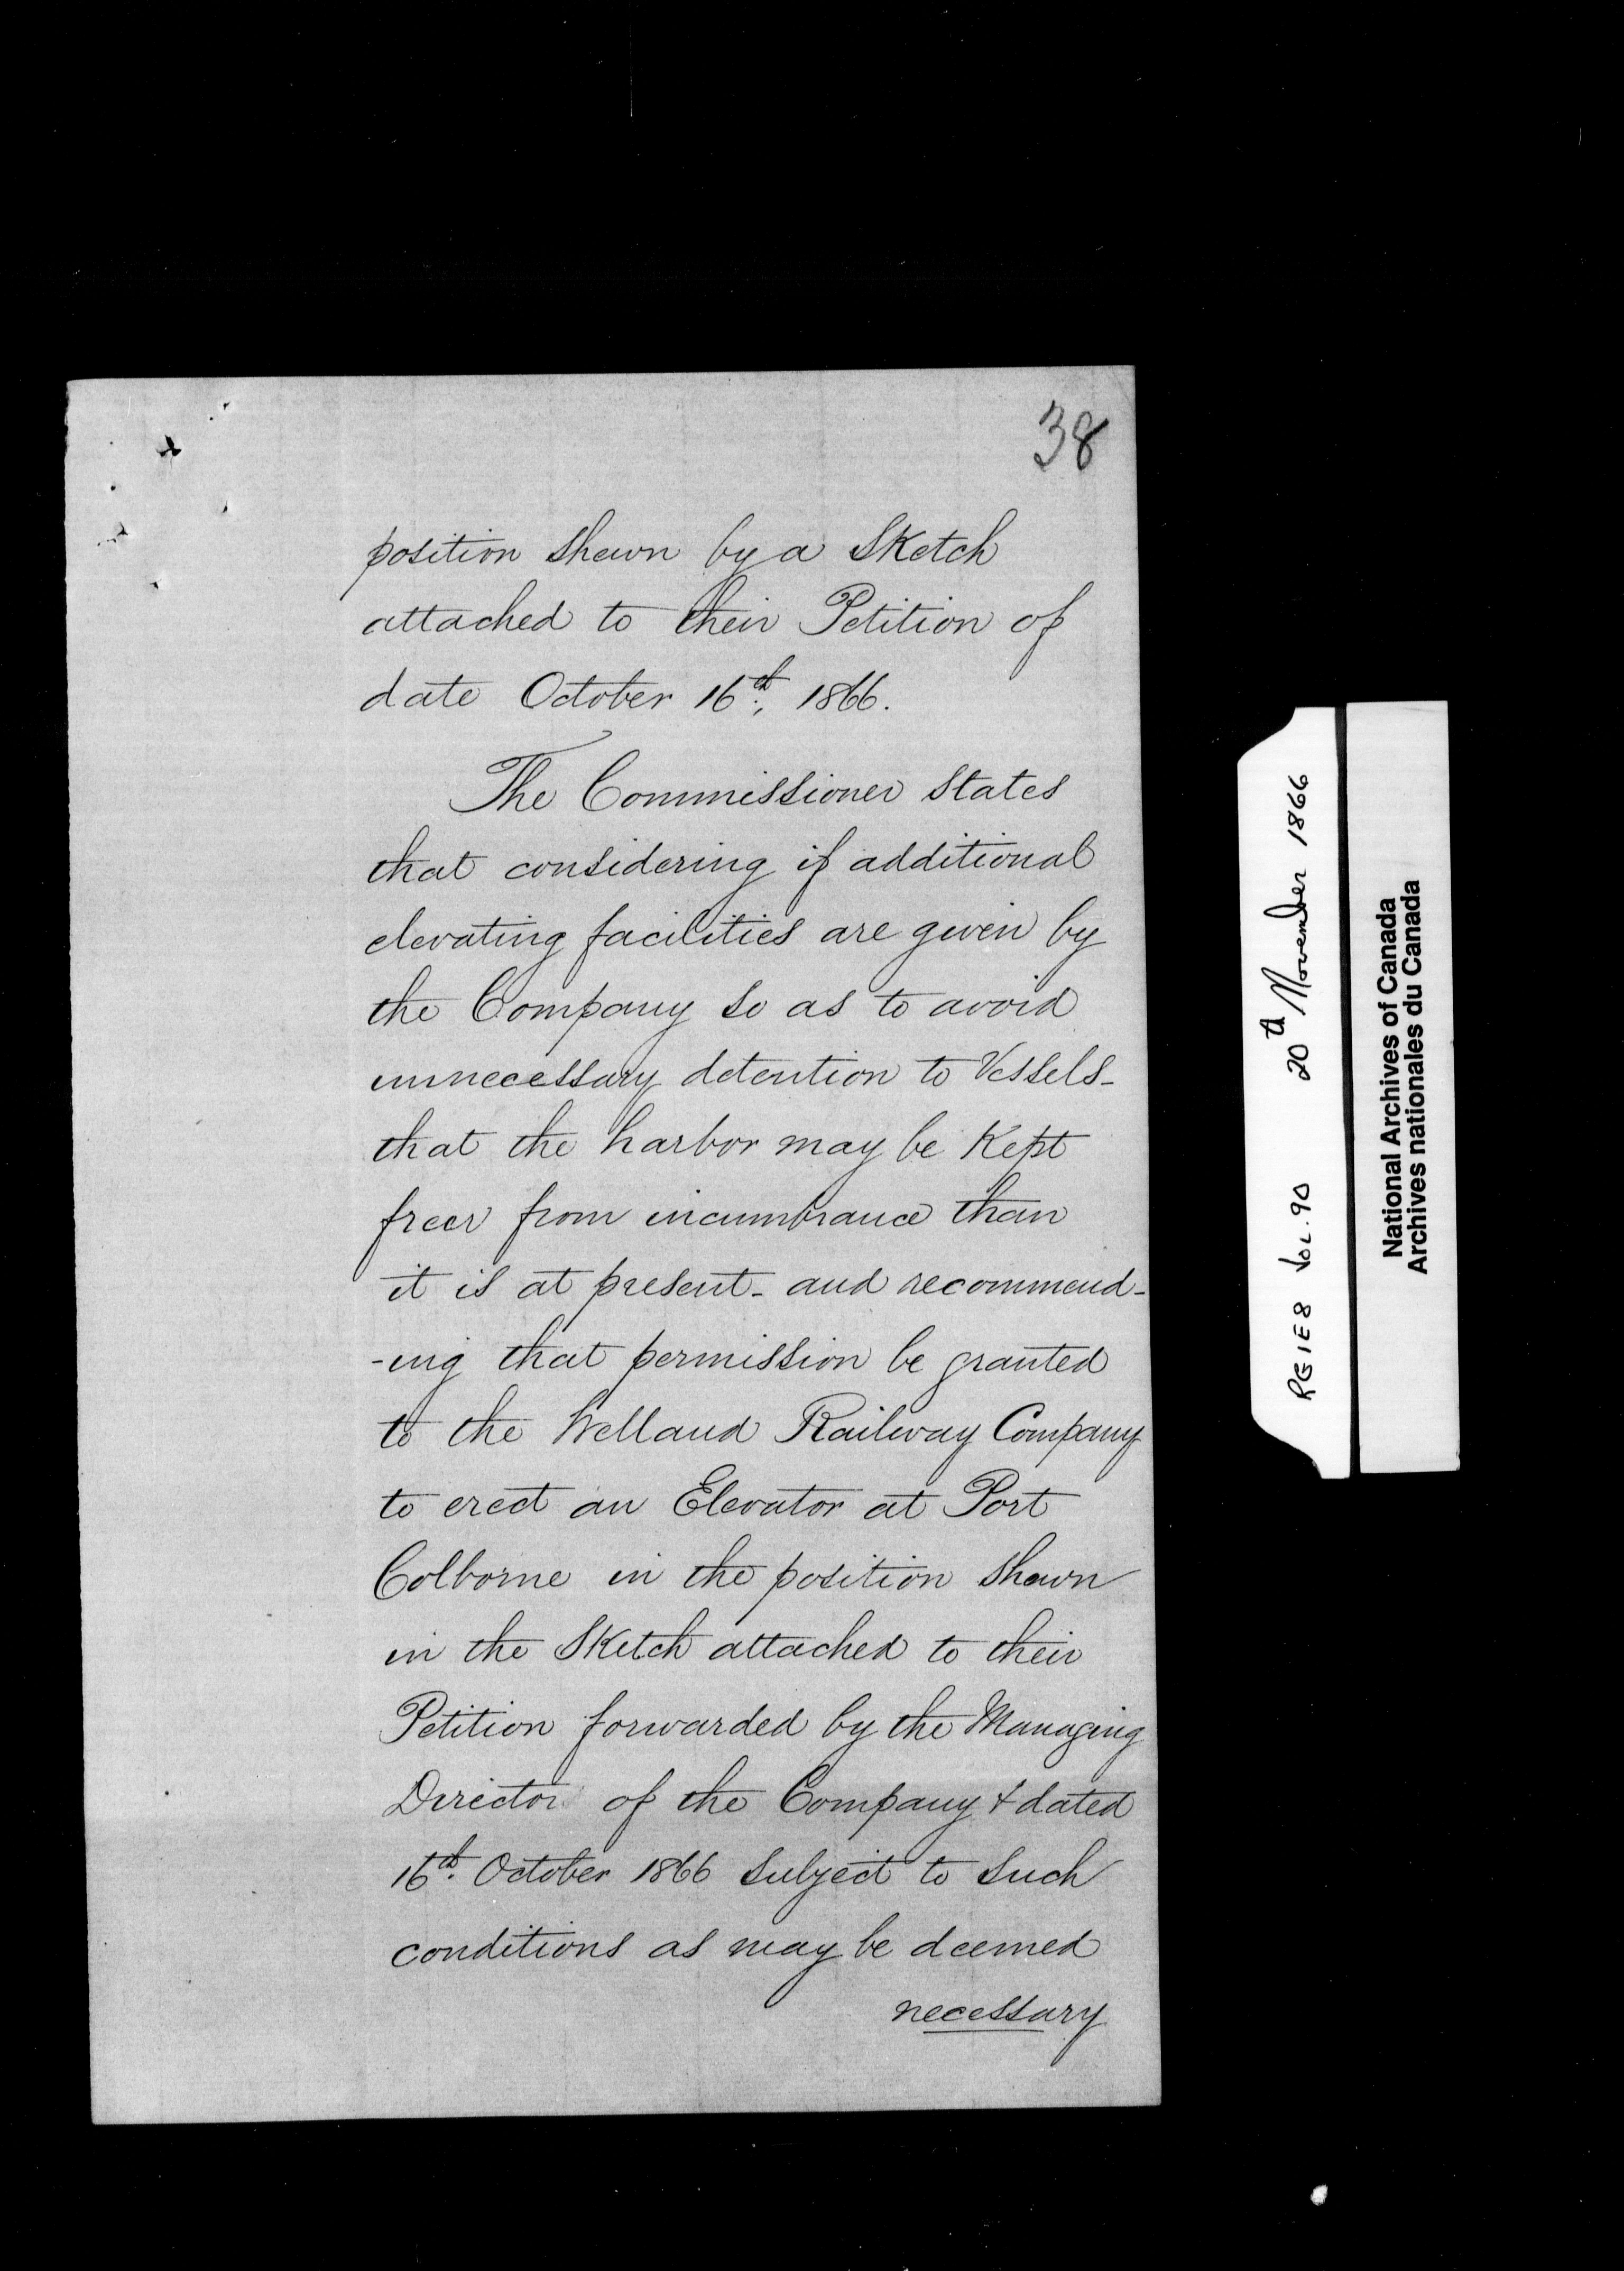 38
position shewn by a Sketch
attached to their Petition of
date October 16th, 1866.
The Commissioner states
that considering if additional
elevating facilities are given by
the Company so as to avoid
unnecessary detention to Vessels-
that the harbor may be Kept
freer from incumbrance than
it is at present - and recommend-
-ing that permission be granted
to the Welland Railway Company
to erect an Elevator at Port
Colborne in the position shewn
in the Sketch attached to their
Petition forwarded by the Managing
Director of the Company & dated
16th. October 1866 subject to such
conditions as may be deemed
necessary
RG 1 E 8 Vol. 90 20th November 1866
National Archives of Canada
Archives nationales du Canada